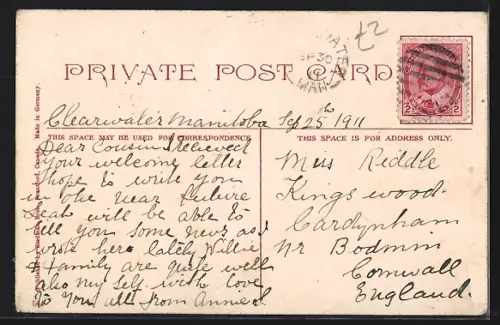 £2
WATER
SP 30
MAN
PRIVATE POST CARD
2 2
Clearwater Manitoba Sep 25th 1911
THIS SPACE MAY BE USED FOR CORRESPONDENCE.
THIS SPACE IS FOR ADDRESS ONLY.
Dear Cousin I recieved
your welcome letter
hope to write you
in the near future
will be able to
tell you some news as I
wrote here lately Willie
& family are quite well
also my self with love
to you all from Annie
Miss Riddle
Kingswood
Cardynham
Nr Bodmin
Cornwall
England.
Canada. Made in Germany.